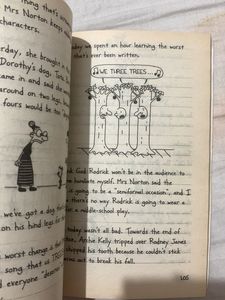 thing that's
Mrs Norton
characters.
rday, she brought in
Dorothy's dog, Toto.
came in and said she
around on two legs,
fours would be "too
we got a dog
his hind legs
worst change is that
song, that us TREES
everyone "deserves
day we spent an hour learning the worst
that's ever been written.
WE THREE TREES...
God Rodrick won't be in the audience to
humiliate myself. Mrs Norton said the
is going to be a "semiformal occasion", and I
there's no way Rodrick is going to wear a
r a middle-school play.
today wasn't all bad. Towards the end of
Archie Kelly tripped over Rodney James
chipped his tooth because he couldn't stick
ms out to break his fall.
105